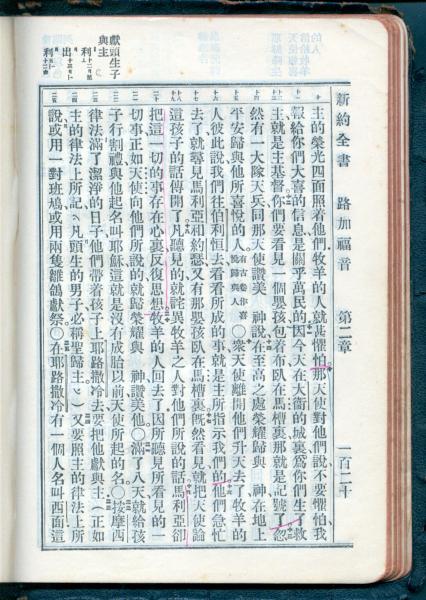 新約全書 路加福音 第二章 一百二十
主的榮光四面照着他們牧羊的人就甚懼怕那天使對他們說不要懼怕我
報給你們大喜的信息是關乎萬民的因今天在大衛的城裏爲你們生了救
主就是主基督你們要看見一個嬰孩包着布臥在馬槽裏那就是記號了忽
然有一大隊天兵同那天使讚美 神說在至高之處榮耀歸與 神在地上
平安歸與他所喜悅的人有古卷作喜悅歸與人○衆天使離開他們升天去了牧羊的
人彼此說我們往伯利恒去看看所成的事就是主所指示我們的他們急忙
去了就尋見馬利亞和約瑟又有那嬰孩臥在馬槽裏旣然看見就把天使論
這孩子的話傳開了凡聽見的就詫異牧羊之人對他們所說的話馬利亞卻
把這一切的事存在心裏反復思想牧羊的人回去了因所聽見所看見的一
切事正如天使向他們所說的就歸榮耀與 神讚美他○滿了八天就給孩
子行割禮與他起名叫耶穌這就是沒有成胎以前天使所起的名○按摩西
律法滿了潔淨的日子他們帶着孩子上耶路撒冷去要把他獻與主(正如
主的律法上所記凡頭生的男子必稱聖歸主)又要照主的律法上所
說或用一對班鳩或用兩隻雛鴿獻祭○在耶路撒冷有一個人名叫西面這
獻頭生子
與主